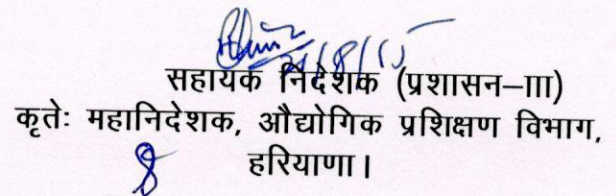 सहायक निदेशक (प्रशासन–III)
कृतेः महानिदेशक, औद्योगिक प्रशिक्षण विभाग,
हरियाणा।